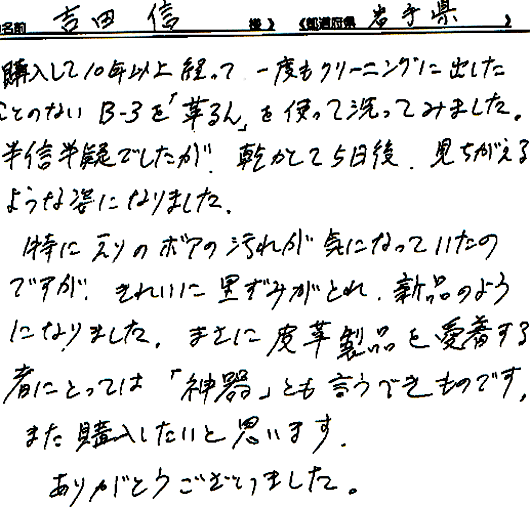 名前 吉田 信 様》 《都道府県 岩手県 》
購入して10年以上経って 一度もクリーニングに出した
ことのない B-3を「革るん」を使って洗ってみました。
半信半疑でしたが、乾かして5日後、見ちがえる
ような姿になりました。
特にえりのボアの汚れが気になっていたの
ですが、きれいに黒ずみがとれ、新品のよう
になりました。まさに皮革製品を愛着する
者にとっては「神器」とも言うべきものです。
また購入したいと思います。
ありがとうございました。